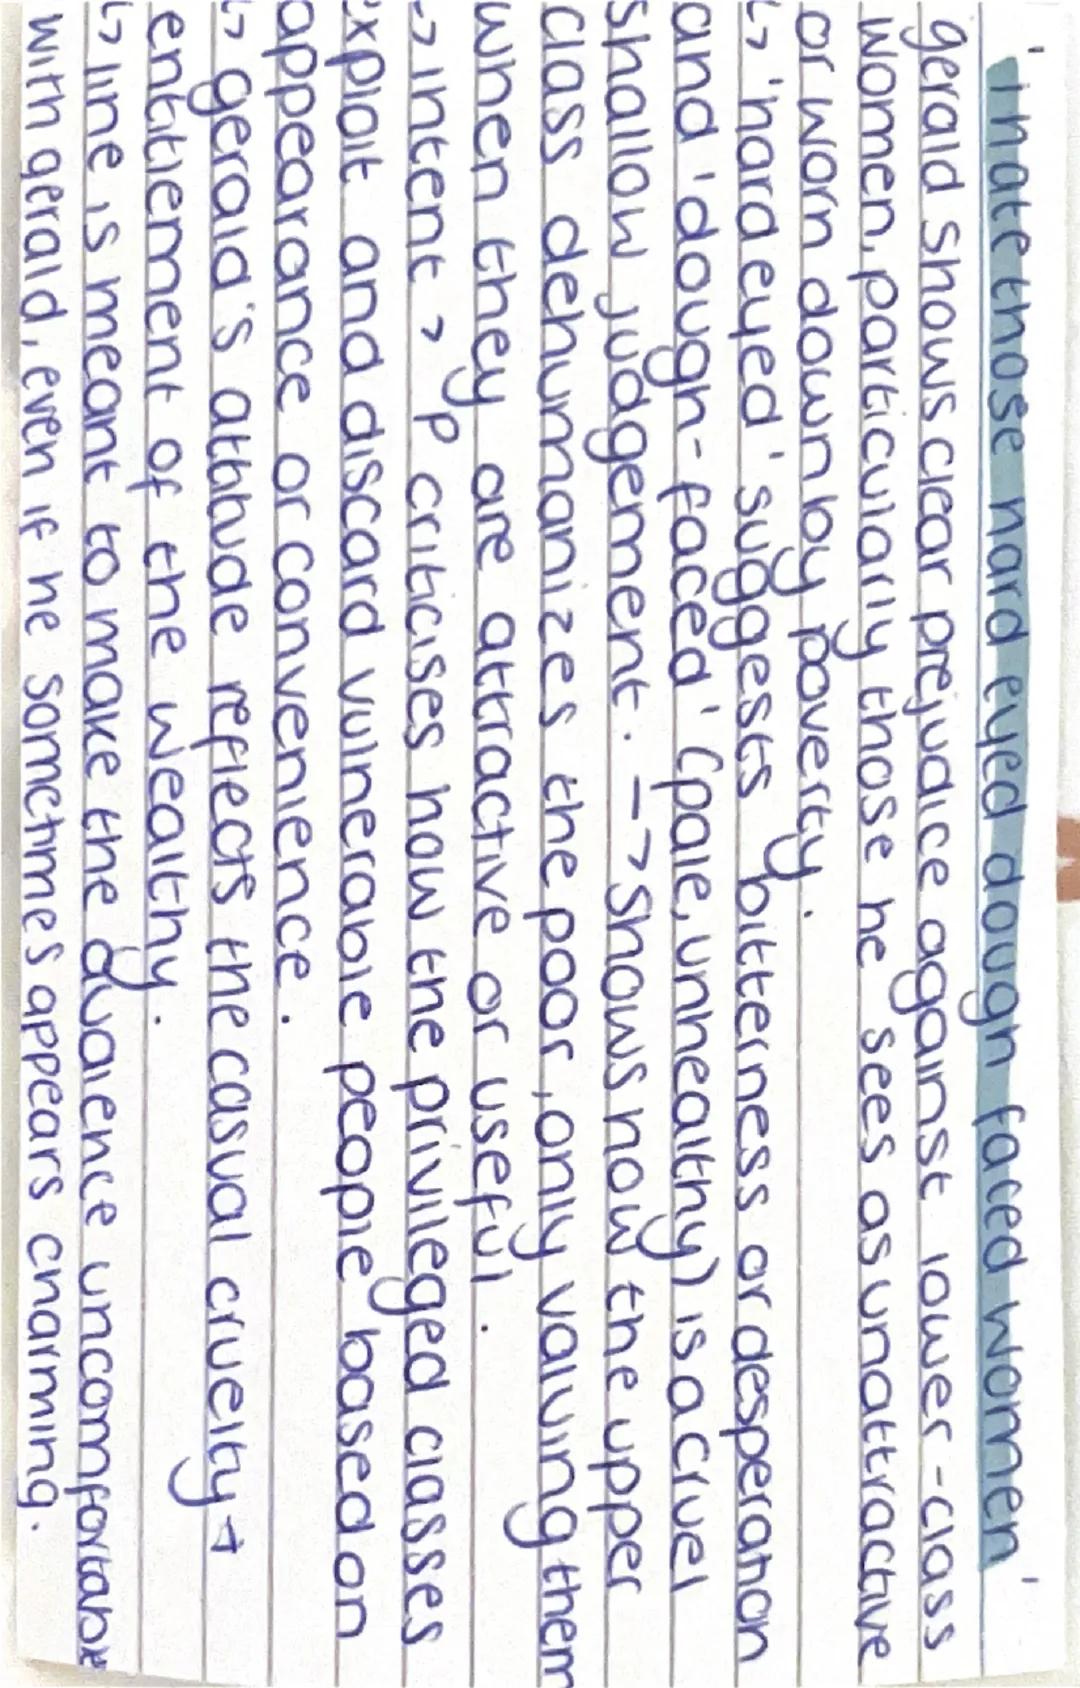 'i hate those hard eyed dough faced women'
gerald shows clear prejudice against lower-class
women, particularly those he sees as unattractive
or worn down by poverty.
↳ 'hard eyed' suggests bitterness or desperation
and 'dough-faced' (pale, unhealthy) is a cruel
shallow judgement. -> shows how the upper
class dehumanizes the poor, only valuing them
when they are attractive or useful.
-> intent > p criticises how the privileged classes
exploit and discard vulnerable people based on
appearance or convenience.
↳ gerald's attitude reflects the casual cruelty +
entitlement of the wealthy.
↳ line is meant to make the audience uncomfortable
with gerald, even if he sometimes appears charming.